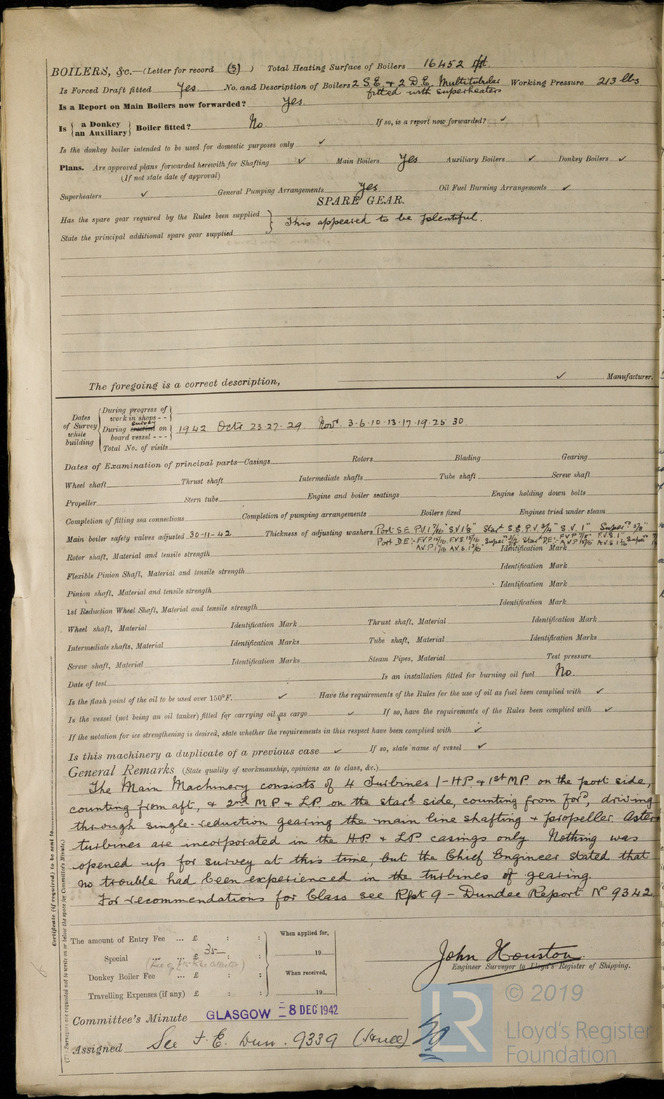 BOILERS, &c.—(Letter for record (S) ) Total Heating Surface of Boilers 16452 sq ft.
Is Forced Draft fitted Yes. No. and Description of Boilers 2 S.E & 2 D.E. Multitubular Working Pressure 213 lbs
fitted with superheaters
Is a Report on Main Boilers now forwarded? Yes.
Is { a Donkey / an Auxiliary } Boiler fitted? No If so, is a report now forwarded? ✓
Is the donkey boiler intended to be used for domestic purposes only ✓
Plans. Are approved plans forwarded herewith for Shafting ✓ Main Boilers Yes Auxiliary Boilers ✓ Donkey Boilers ✓
(If not state date of approval)
Superheaters ✓ General Pumping Arrangements Yes. Oil Fuel Burning Arrangements ✓
SPARE GEAR.
Has the spare gear required by the Rules been supplied } This appeared to be plentiful.
State the principal additional spare gear supplied
The foregoing is a correct description,
✓ Manufacturer.
Dates of Survey while building
During progress of work in shops - -
During erection on board vessel - - - 1942 Octr 23.27.29 Novr. 3.6.10.13.17.19.25.30.
Total No. of visits
Dates of Examination of principal parts—Casings Rotors Blading Gearing
Wheel shaft Thrust shaft Intermediate shafts Tube shaft Screw shaft
Propeller Stern tube Engine and boiler seatings Engine holding down bolts
Completion of fitting sea connections Completion of pumping arrangements Boilers fixed Engines tried under steam
Main boiler safety valves adjusted 30-11-42 Thickness of adjusting washers Port S.E. P.V. S.V. Star S.E. P.V. S.V. 1" Super
Port D.E:- F.V.P. F.V.S. Super Star D.E:- F.V.P. F.V.S. 1"
A.V.P. A.V.S. A.V.P. A.V.S. Super
Rotor shaft, Material and tensile strength Identification Mark
Flexible Pinion Shaft, Material and tensile strength Identification Mark
Pinion shaft, Material and tensile strength Identification Mark
1st Reduction Wheel Shaft, Material and tensile strength Identification Mark
Wheel shaft, Material Identification Mark Thrust shaft, Material Identification Mark
Intermediate shafts, Material Identification Marks Tube shaft, Material Identification Marks
Screw shaft, Material Identification Marks Steam Pipes, Material Test pressure
Date of test Is an installation fitted for burning oil fuel No.
Is the flash point of the oil to be used over 150°F. ✓ Have the requirements of the Rules for the use of oil as fuel been complied with ✓
Is the vessel (not being an oil tanker) fitted for carrying oil as cargo ✓ If so, have the requirements of the Rules been complied with ✓
If the notation for ice strengthening is desired, state whether the requirements in this respect have been complied with ✓
Is this machinery a duplicate of a previous case ✓ If so, state name of vessel ✓
General Remarks (State quality of workmanship, opinions as to class, &c.)
The Main Machinery consists of 4 Turbines 1-HP & 1st MP on the port side,
counting from aft, & 2nd MP & LP on the stard side, counting from ford, driving
through single-reduction gearing the main line shafting & propeller. Astern
turbines are incorporated in the HP & LP casings only. Nothing was
opened up for survey at this time, but the Chief Engineer stated that
no trouble had been experienced in the turbines of gearing.
For recommendations for Class see Rpt 9 - Dundee Report No 9342
The amount of Entry Fee ... £ : : When applied for,
Special ... ... £ 35- : 19
Donkey Boiler Fee ... £ : : When received,
Travelling Expenses (if any) £ : : 19
John Houston.
Engineer Surveyor to Lloyd's Register of Shipping.
Committee's Minute GLASGOW -8 DEC 1942
Assigned See F.E. Dun. 9339 (Hull)
LR
© 2019
Lloyd's Register
Foundation